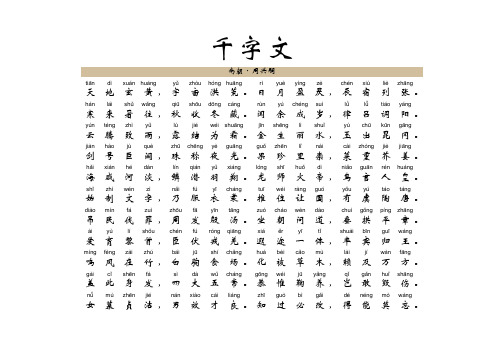 千字文
南朝·周兴嗣
tiān dì xuán huáng yǔ zhòu hóng huāng rì yuè yíng zè chén xiù liè zhāng
天地玄黄，宇宙洪荒。日月盈昃，辰宿列张。
hán lái shǔ wǎng qiū shōu dōng cáng rùn yú chéng suì lǜ lǚ tiáo yáng
寒来暑往，秋收冬藏。闰余成岁，律吕调阳。
yún téng zhì yǔ lù jié wéi shuāng jīn shēng lì shuǐ yù chū kūn gāng
云腾致雨，露结为霜。金生丽水，玉出昆冈。
jiàn hào jù què zhū chēng yè guāng guǒ zhēn lǐ nài cài zhòng jiè jiāng
剑号巨阙，珠称夜光。果珍李柰，菜重芥姜。
hǎi xián hé dàn lín qián yǔ xiáng lóng shī huǒ dì niǎo guān rén huáng
海咸河淡，鳞潜羽翔。龙师火帝，鸟官人皇。
shǐ zhì wén zì nǎi fú yī cháng tuī wèi ràng guó yǒu yú táo táng
始制文字，乃服衣裳。推位让国，有虞陶唐。
diào mín fá zuì zhōu fā yīn tāng zuò cháo wèn dào chuí gǒng píng zhāng
吊民伐罪，周发殷汤。坐朝问道，垂拱平章。
ài yù lí shǒu chén fú róng qiāng xiá ěr yī tǐ shuài bīn guī wáng
爱育黎首，臣伏戎羌。遐迩一体，率宾归王。
míng fèng zài zhú bái jū shí chǎng huà bèi cǎo mù lài jí wàn fāng
鸣凤在竹，白驹食场。化被草木，赖及万方。
gài cǐ shēn fà sì dà wǔ cháng gōng wéi jū yǎng qǐ gǎn huǐ shāng
盖此身发，四大五常。恭惟鞠养，岂敢毁伤。
nǚ mù zhēn jié nán xiào cái liáng zhī guò bì gǎi dé néng mò wàng
女慕贞洁，男效才良。知过必改，得能莫忘。